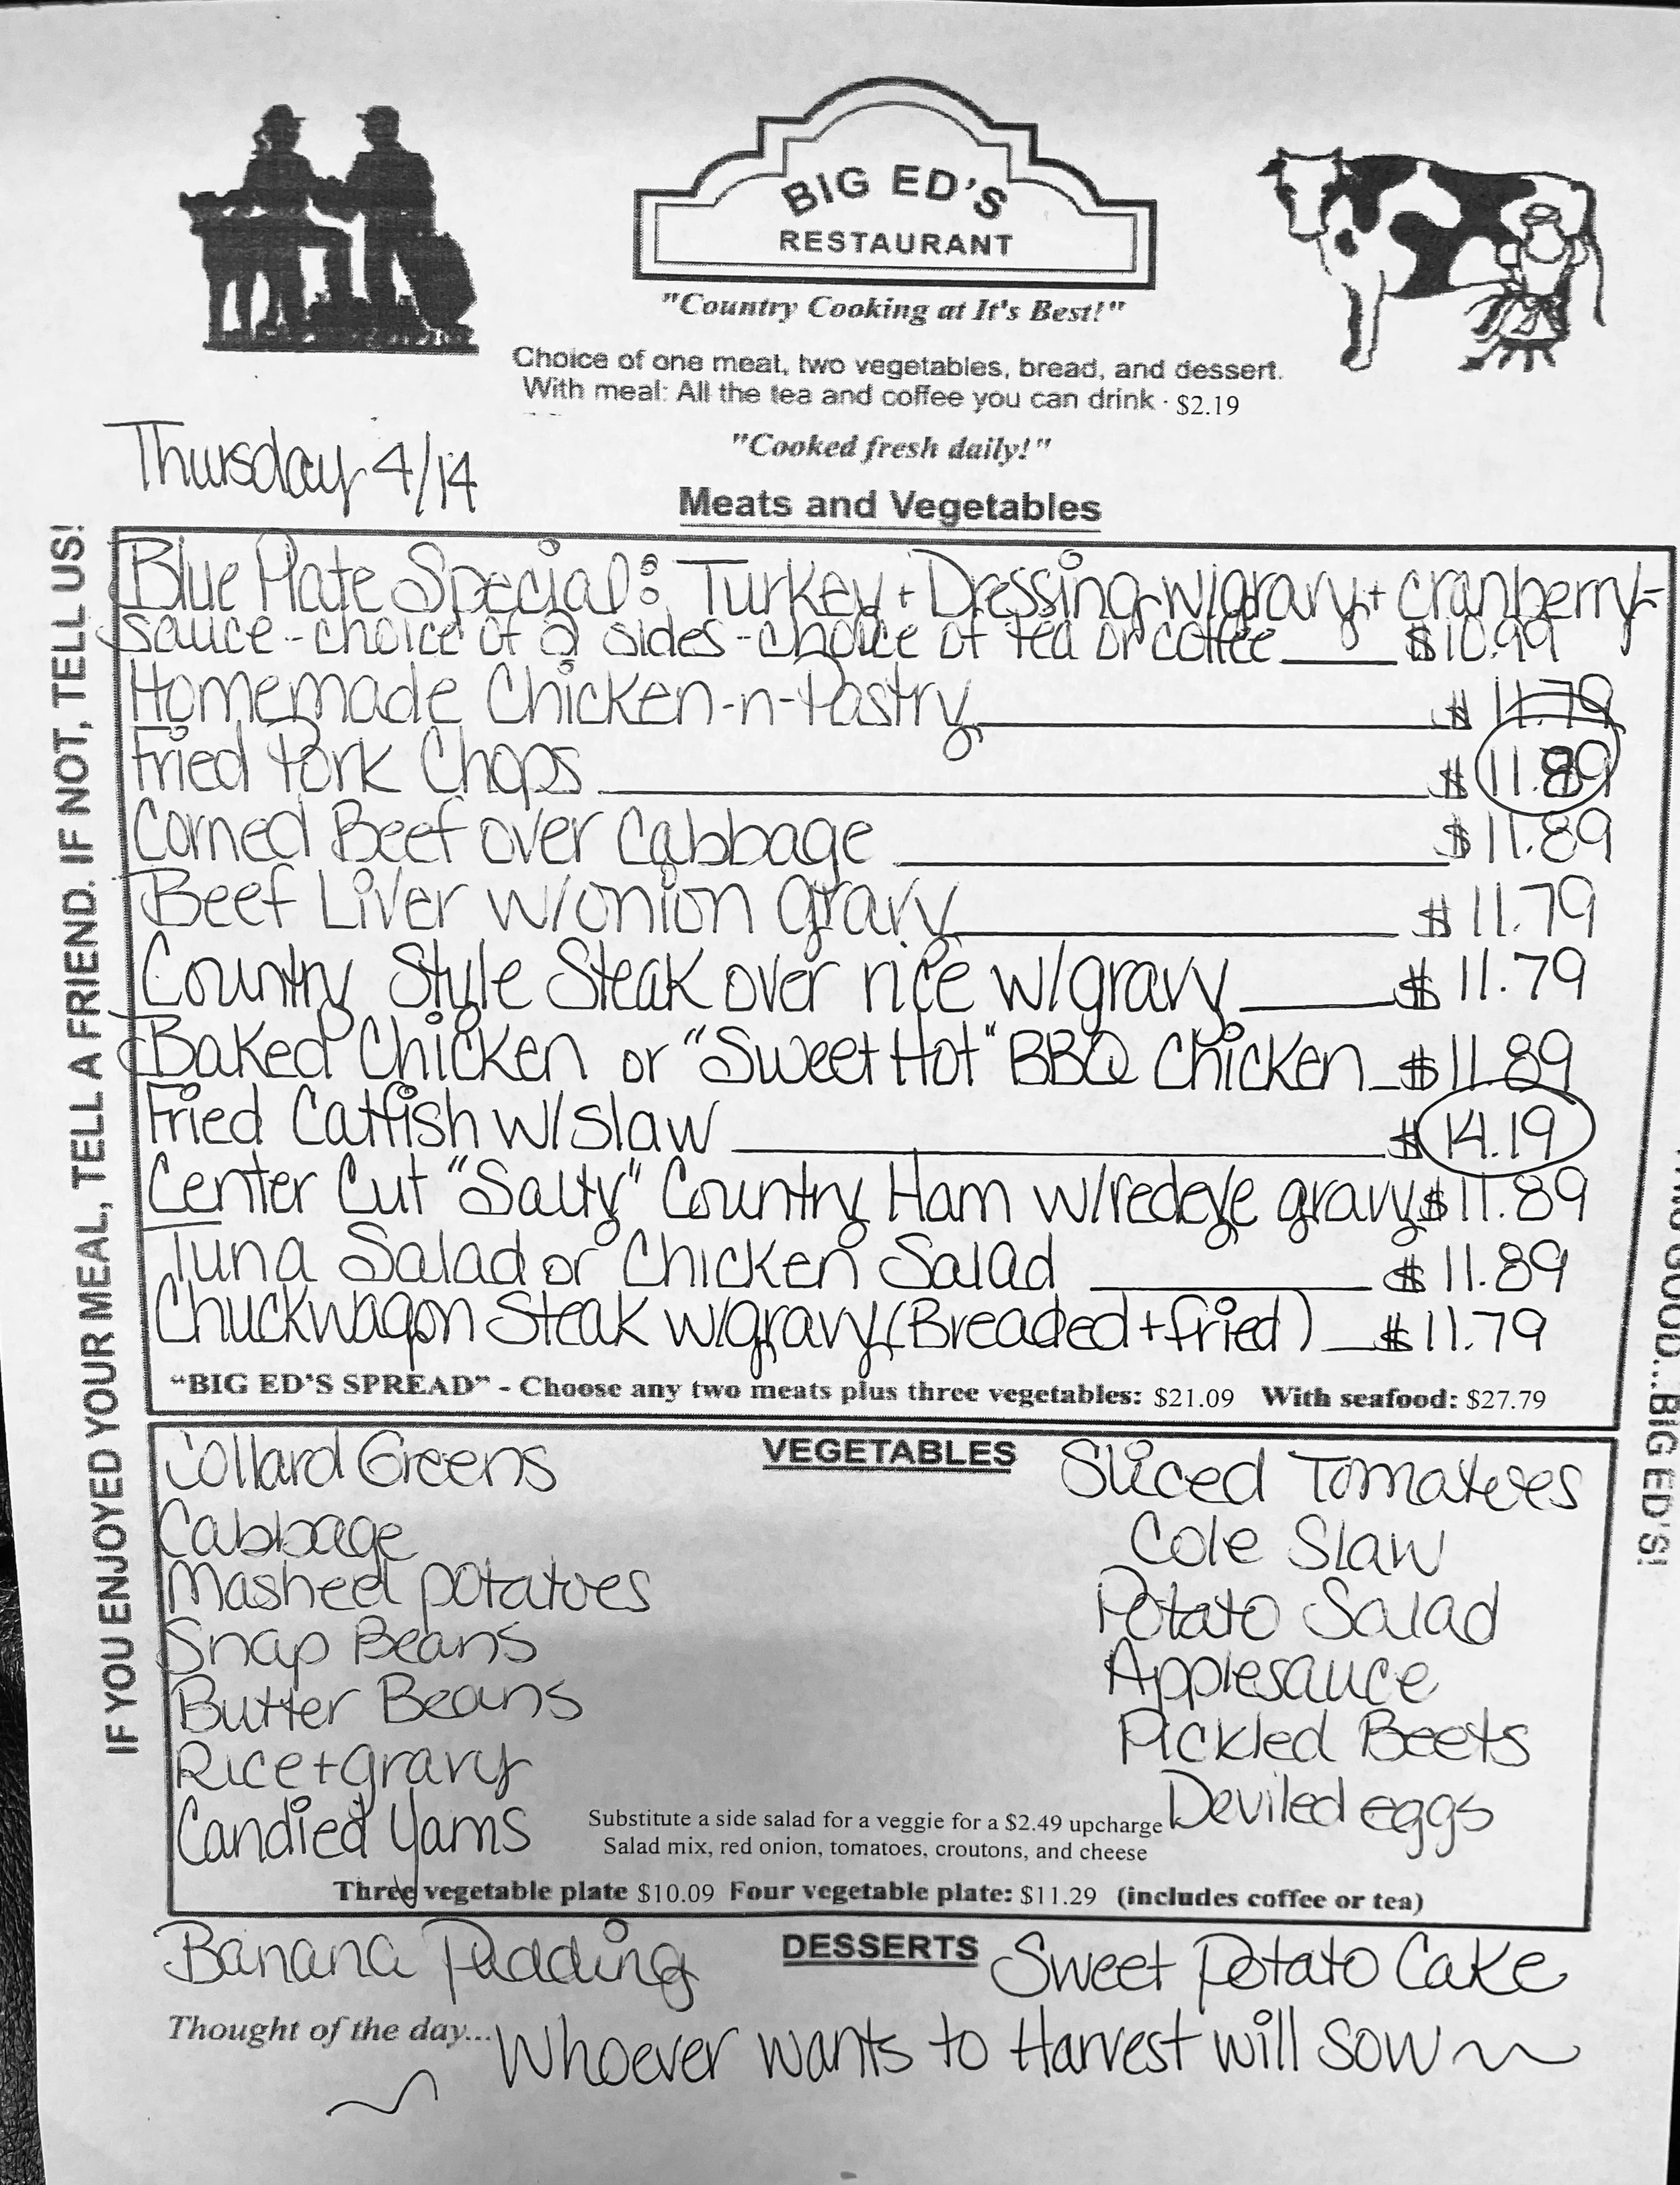 BIG ED'S
RESTAURANT
"Country Cooking at It's Best!"
Choice of one meat, two vegetables, bread, and dessert.
With meal: All the tea and coffee you can drink · $2.19
"Cooked fresh daily!"
Thursday 4/14
Meats and Vegetables
Blue Plate Special: Turkey + Dressing w/gravy + cranberry-
sauce - choice of 2 sides - choice of tea or coffee $10.99
Homemade Chicken-n-Pastry $ 11.79
Fried Pork Chops $ 11.89
Corned Beef over Cabbage $11.89
Beef Liver w/onion gravy $ 11.79
Country Style Steak over rice w/gravy $ 11.79
Baked Chicken or "Sweet Hot" BBQ Chicken $11.89
Fried Catfish w/slaw $ 14.19
Center Cut "Salty" Country Ham w/redeye gravy $11.89
Tuna Salad or Chicken Salad $ 11.89
Chuckwagon Steak w/gravy (Breaded + fried) $11.79
"BIG ED'S SPREAD" - Choose any two meats plus three vegetables: $21.09 With seafood: $27.79
VEGETABLES
Collard Greens
Cabbage
Mashed potatoes
Snap Beans
Butter Beans
Rice + gravy
Candied Yams
Sliced Tomatoes
Cole Slaw
Potato Salad
Applesauce
Pickled Beets
Deviled eggs
Substitute a side salad for a veggie for a $2.49 upcharge
Salad mix, red onion, tomatoes, croutons, and cheese
Three vegetable plate $10.09 Four vegetable plate: $11.29 (includes coffee or tea)
DESSERTS
Banana Pudding
Sweet Potato Cake
Thought of the day... Whoever wants to Harvest will sow
IF YOU ENJOYED YOUR MEAL, TELL A FRIEND. IF NOT, TELL US!
GOOD...BIG ED'S!